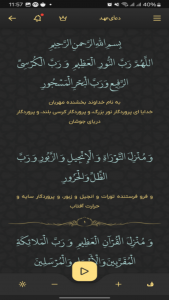 11:57
54%
دعای عهد
بِسْمِ اللَّهِ الرَّحْمَنِ الرَّحِيمِ
اللَّهُمَّ رَبَّ النُّورِ الْعَظِيمِ وَ رَبَّ الْكُرْسِيِّ
الرَّفِيعِ وَ رَبَّ الْبَحْرِ الْمَسْجُورِ
به نام خداوند بخشنده مهربان
خدایا ای پروردگار نور بزرگ و پروردگار کرسی بلند، و پروردگار
دریای جوشان
وَ مُنْزِلَ التَّوْرَاةِ وَ الْإِنْجِيلِ وَ الزَّبُورِ وَ رَبَّ
الظِّلِّ وَ الْحَرُورِ
و فرو فرستنده تورات و انجیل و زبور، و پروردگار سایه و
حرارت آفتاب
وَ مُنْزِلَ الْقُرْآنِ الْعَظِيمِ وَ رَبَّ الْمَلَائِكَةِ
الْمُقَرَّبِينَ وَ الْأَنْبِيَاءِ وَ الْمُرْسَلِينَ